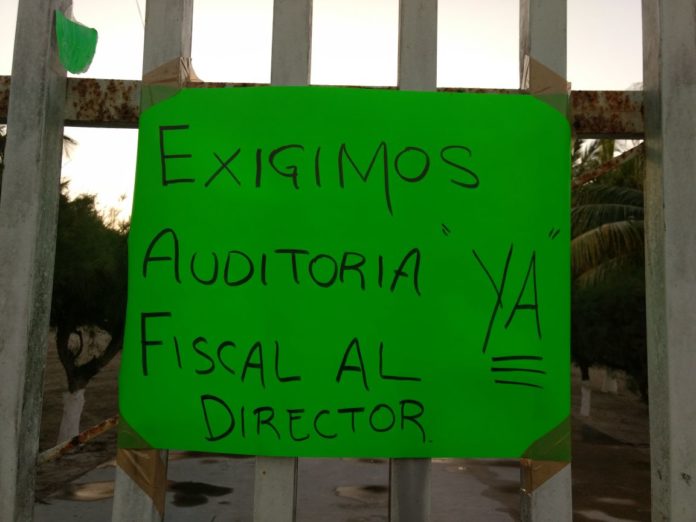 EXIGIMOS
AUDITORIA "YA"
FISCAL AL
DIRECTOR.